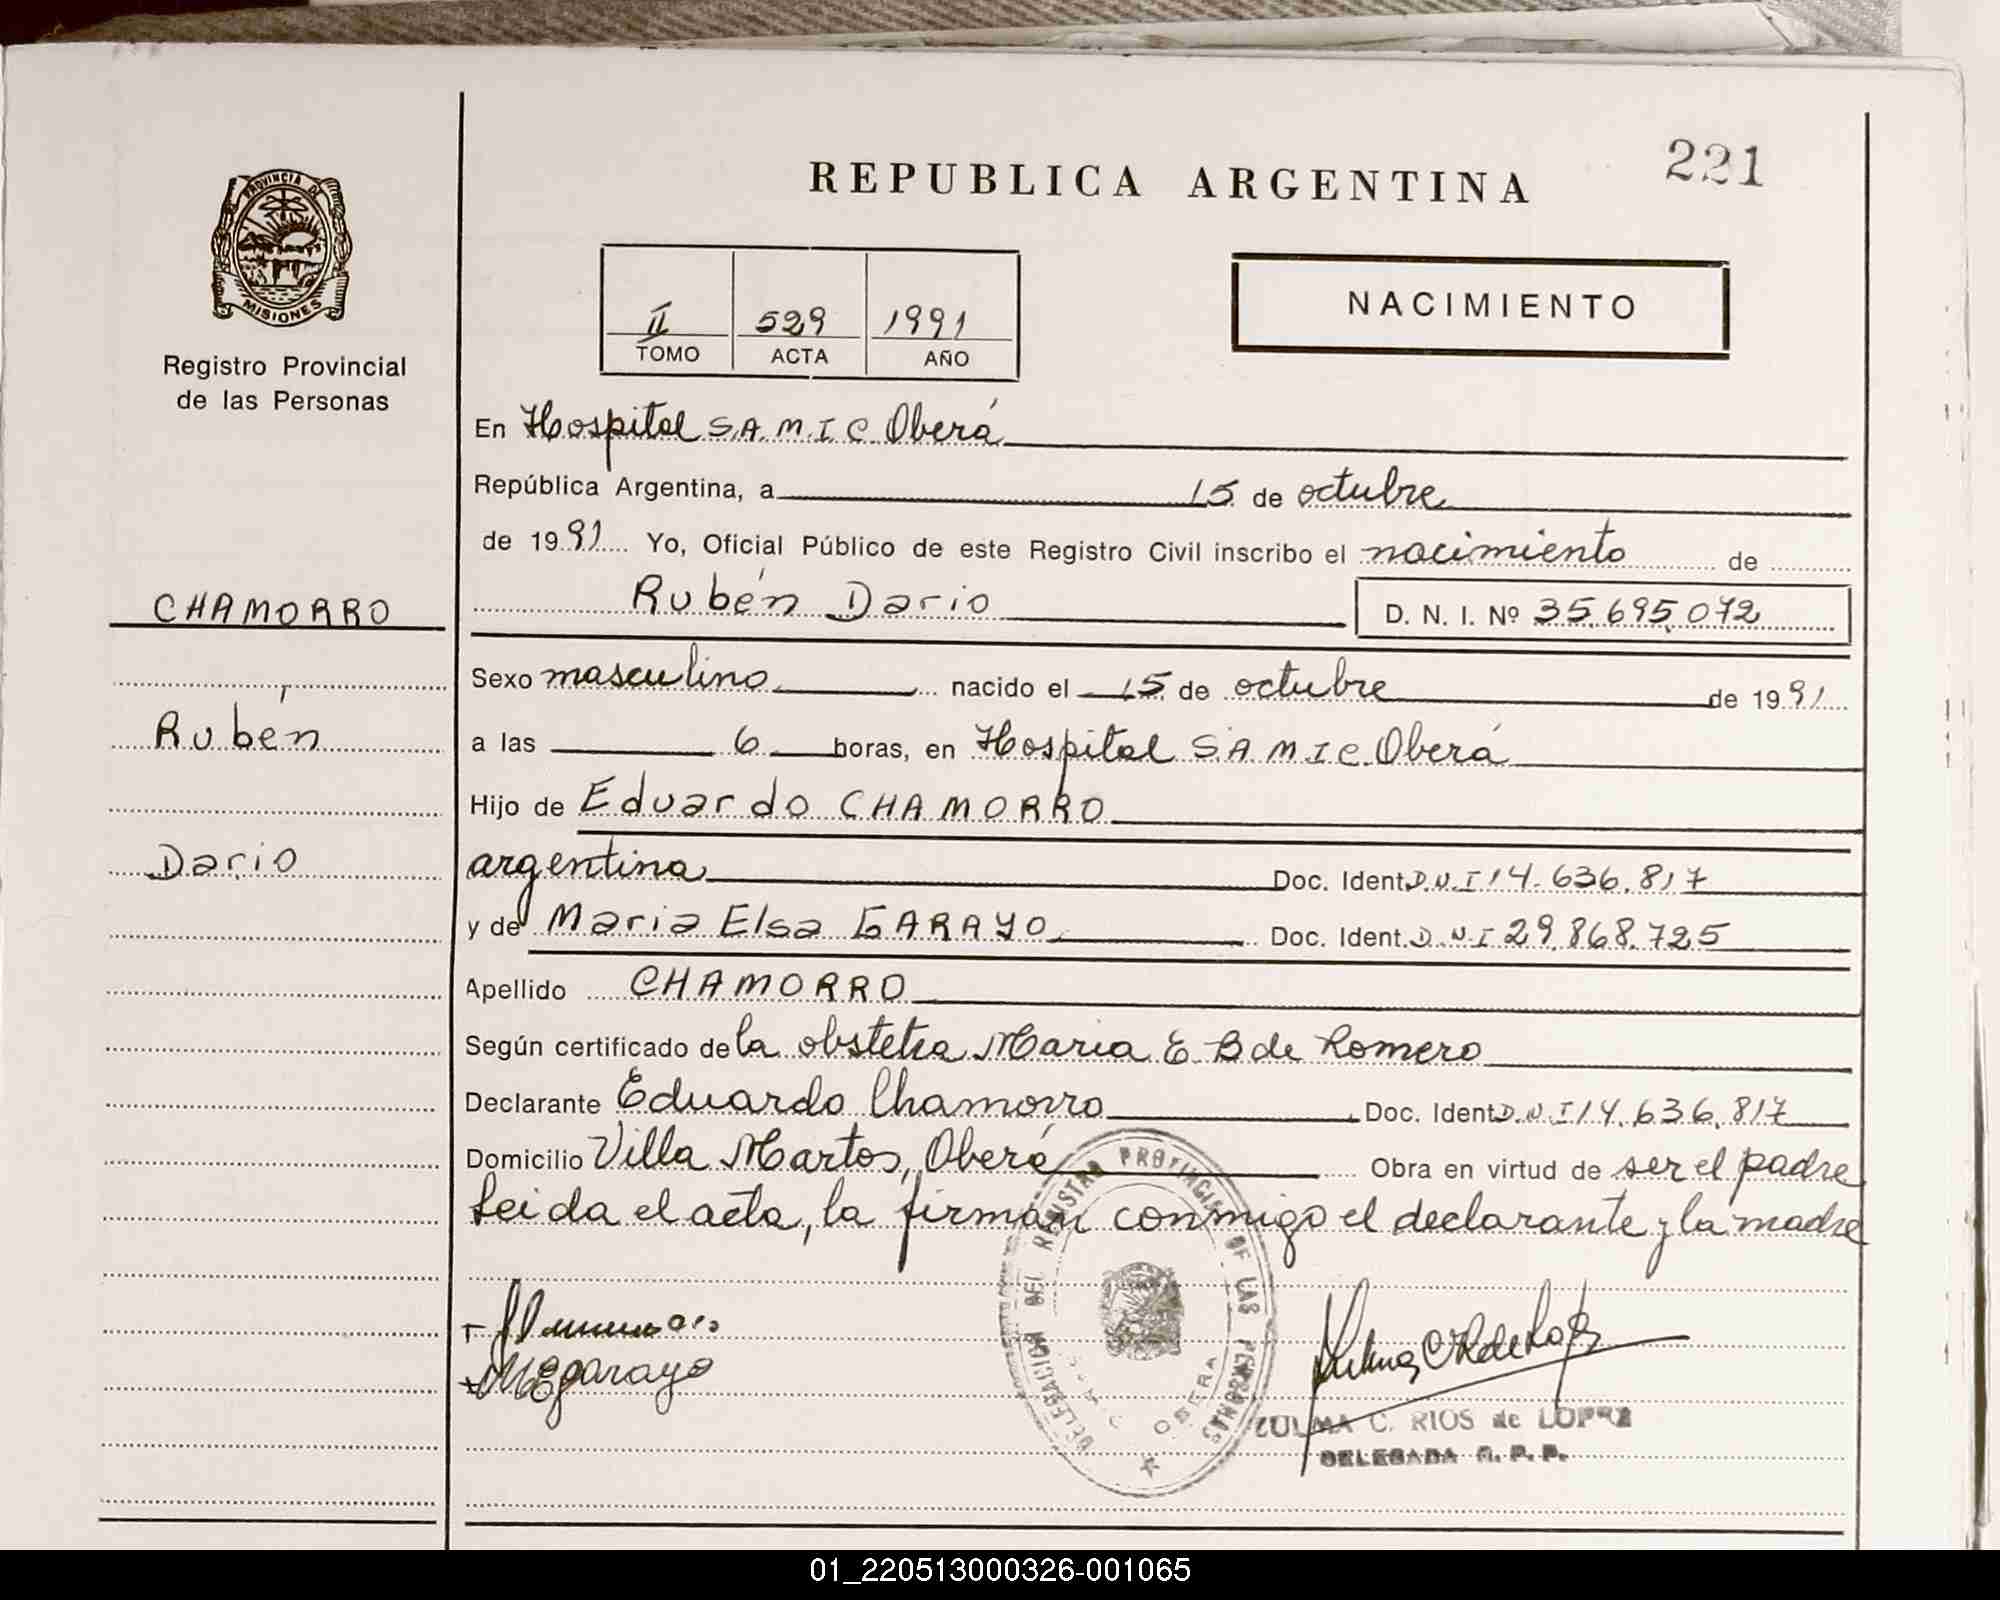 221
REPUBLICA ARGENTINA
PROVINCIA DE
MISIONES
Registro Provincial
de las Personas
II 529 1991
TOMO ACTA AÑO
NACIMIENTO
En Hospital S.A.M.I.C. Oberá
República Argentina, a 15 de octubre
de 1991 Yo, Oficial Público de este Registro Civil inscribo el nacimiento de
CHAMORRO
Rubén Dario D. N. I. Nº 35.695.072
Sexo masculino nacido el 15 de octubre de 1991
Rubén
a las 6 horas, en Hospital S.A.M.I.C. Oberá
Hijo de Eduardo CHAMORRO
Dario
argentina Doc. Ident. D.N.I 14.636.817
y de Maria Elsa GARAYO Doc. Ident. D.N.I 29.868.725
Apellido CHAMORRO
Según certificado de la obstetra Maria E B de Romero
Declarante Eduardo Chamorro Doc. Ident. D.N.I 14.636.817
Domicilio Villa Martos, Oberá Obra en virtud de ser el padre
Leida el acta, la firman conmigo el declarante y la madre
DELEGACION DEL REGISTRO PROVINCIAL DE LAS PERSONAS
OBERA
MEgarayo
ZULMA C. RIOS de LOPEZ
DELEGADA R. P. P.
01_220513000326-001065